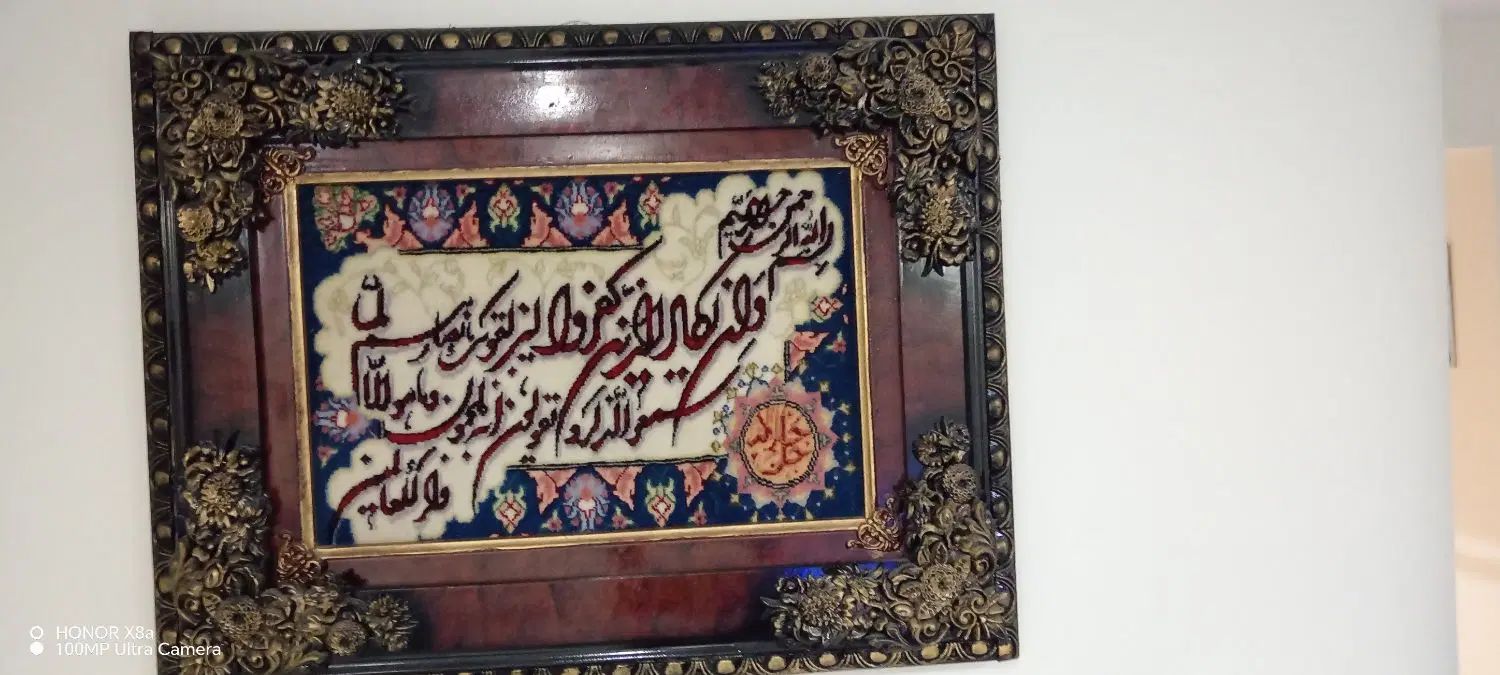 بسم الله الرحمن الرحيم
وَان يكاد الذين كفروا ليزلقونك بابصارهم لمّا
سمعوا الذكر و يقولون انه لمجنون وما هو الّا
ذكر للعالمين
HONOR X8a
100MP Ultra Camera